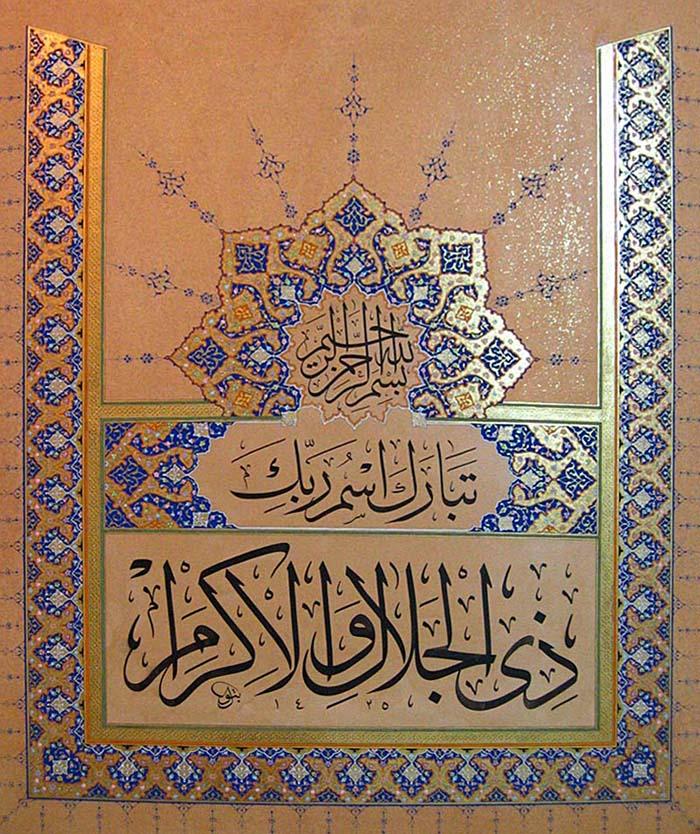 بسم الله الرحمن الرحيم
تَبَارَكَ اسْمُ رَبِّكَ
ذِى الْجَلَالِ وَالْاِكْرَامِ
١٤٢٥